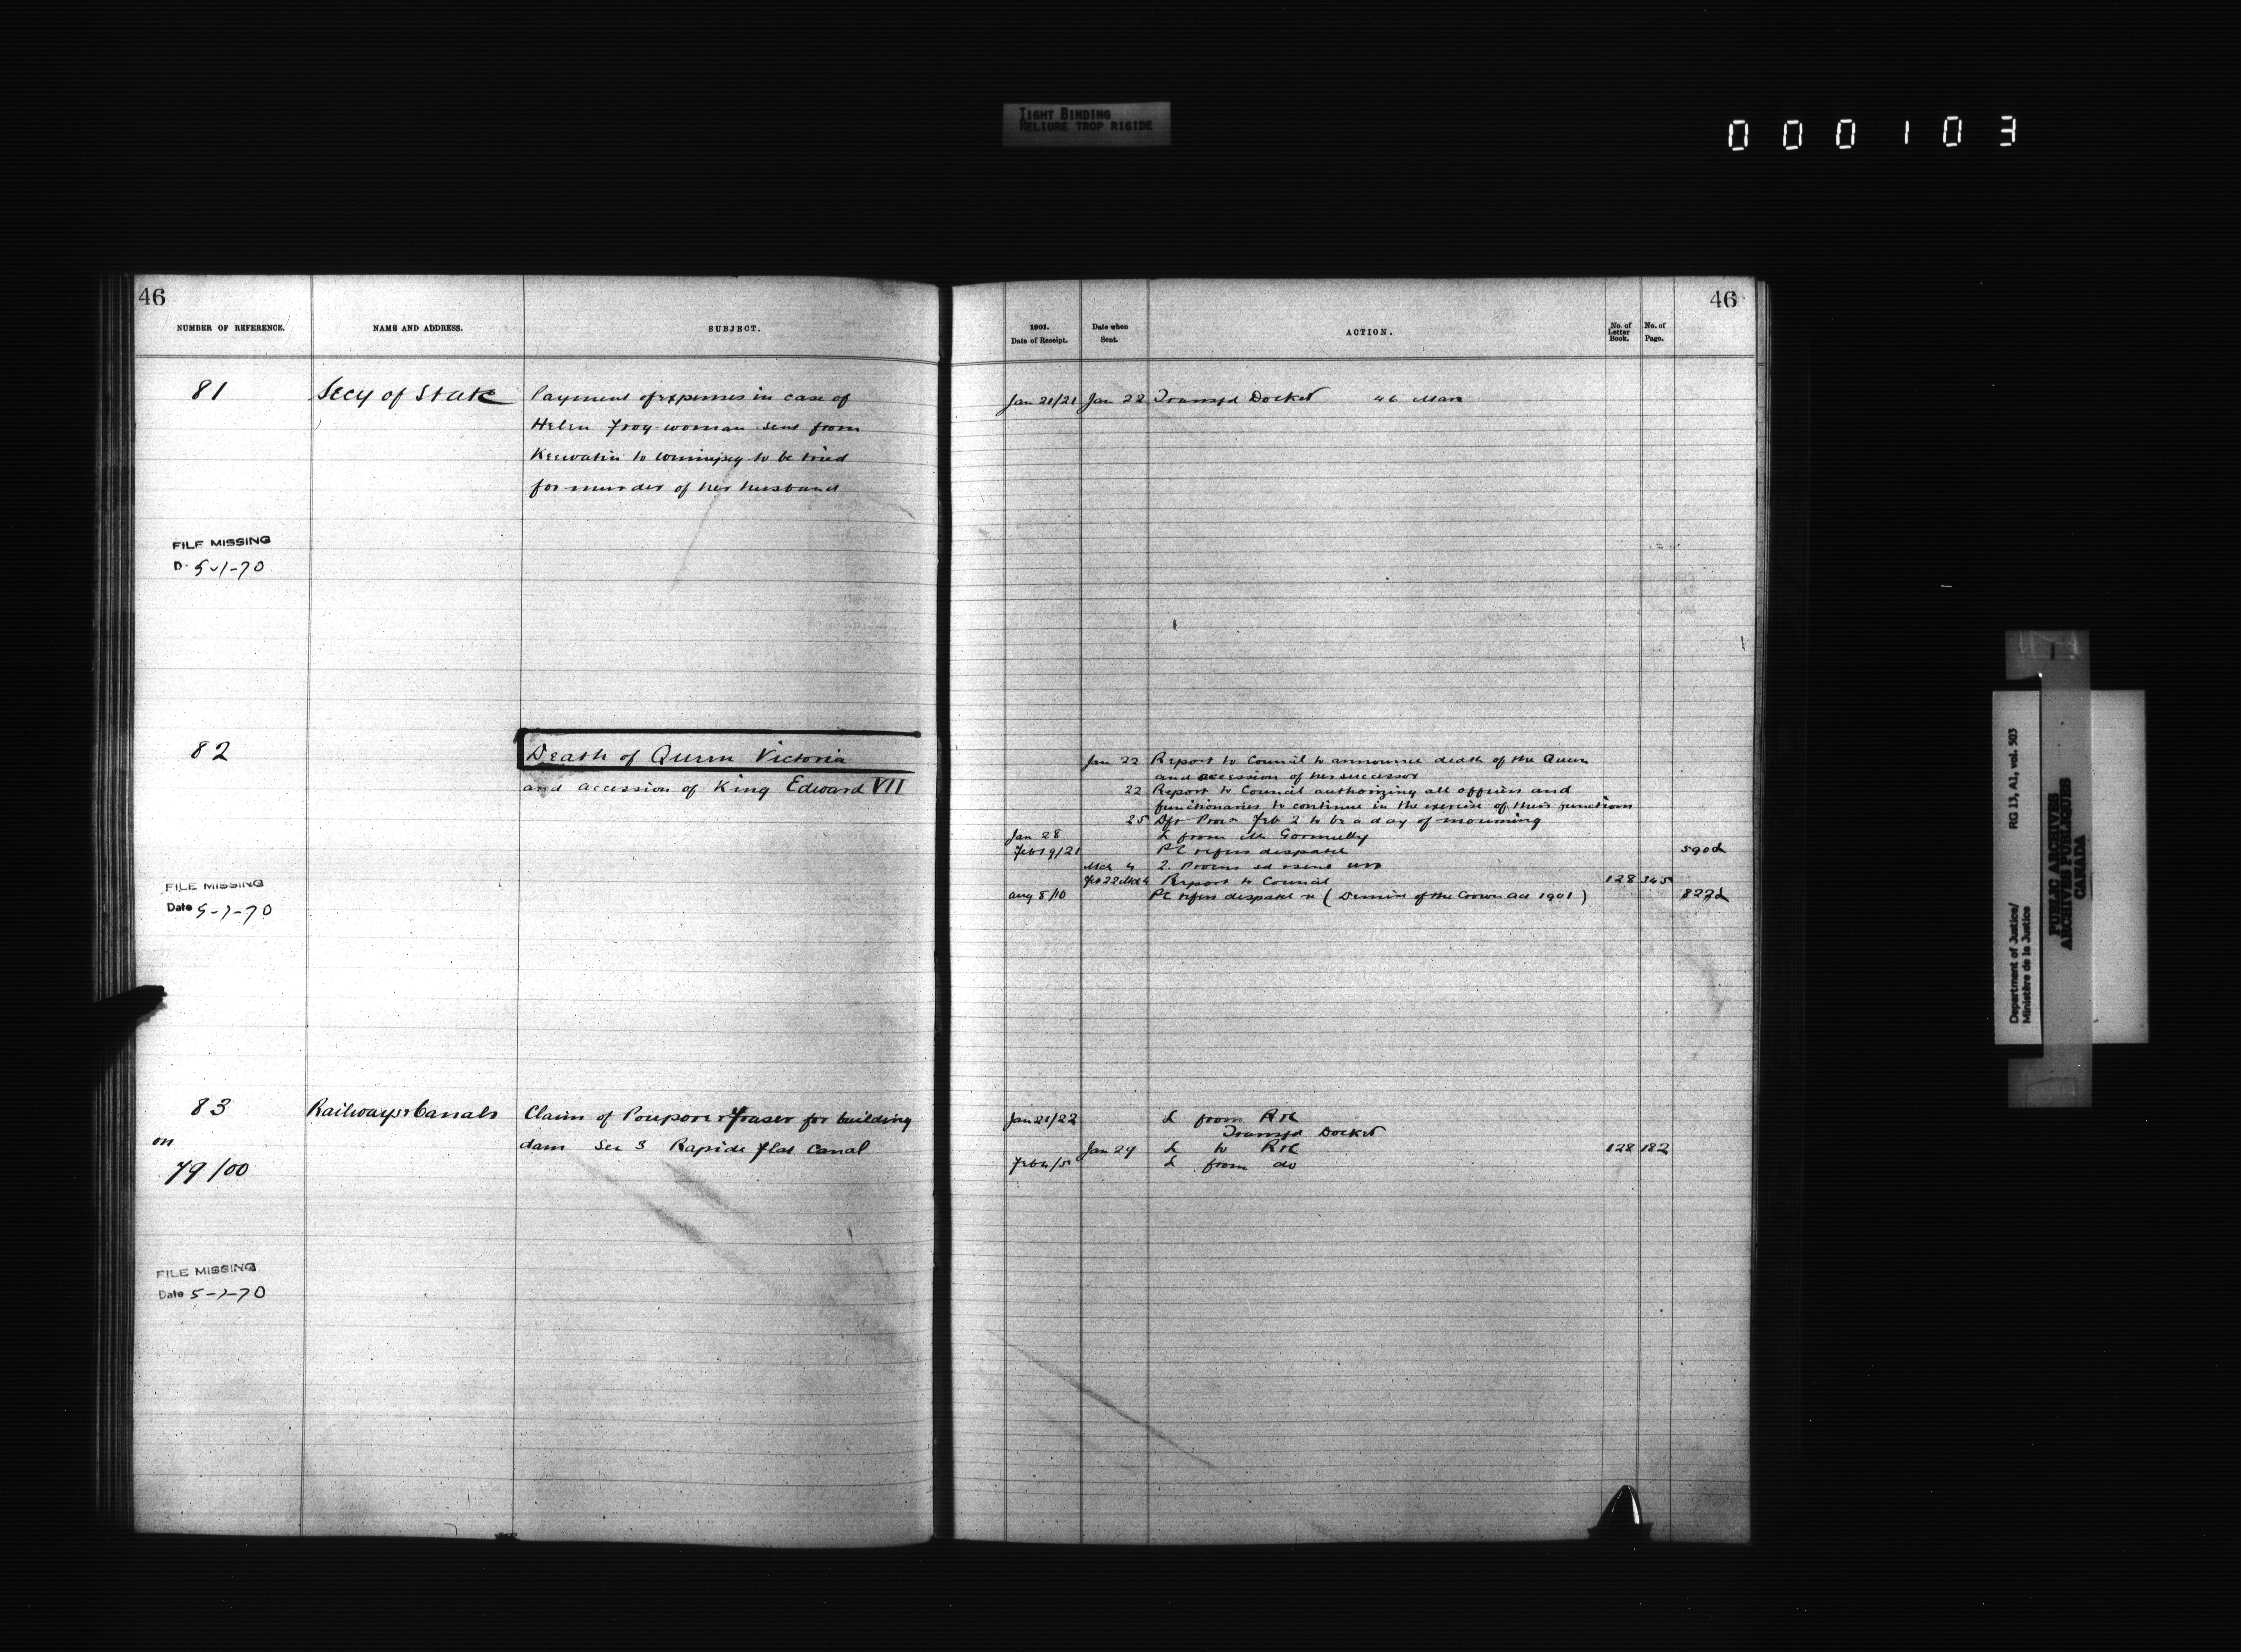 TIGHT BINDING
RELIURE TROP RIGIDE
000103
46
NUMBER OF REFERENCE.
NAME AND ADDRESS.
SUBJECT.
81
Secy of State
Payment of expenses in case of
Helen Troy woman sent from
Keewatin to Winnipeg to be tried
for murder of her husband
FILE MISSING
D. 5-1-70
82
Death of Queen Victoria
and accession of King Edward VII
FILE MISSING
Date 5-1-70
83
on
79/00
Railways & Canals
Claim of Poupore & Fraser for building
dam Sec 3 Rapide Flat Canal
FILE MISSING
Date 5-1-70
46
1901.
Date of Receipt.
Date when
Sent.
ACTION.
No. of
Letter
Book.
No. of
Page.
Jan 21/21 Jan 22 Transfd Docket 46
Jan 22 Report to Council to announce death of the Queen
and accession of her successor
22 Report to Council authorizing all officers and
functionaries to continue in the exercise of their functions
25 Dft Procn Feb 2 to be a day of mourning
Jan 28 L from Mr Gormully
Feb 19/21 PC refers despatch 590d
Mch 4 2. Procns
Feb 22 Mch 4 Report to Council 128 345
Aug 8/10 PC refers despatch re (Demise of the Crown Act 1901) 822d
Jan 21/22 L from R&C
Transfd Docket
Jan 29 L to R&C 128 182
Feb 4/5 L from do
Department of Justice/
Ministère de la Justice
RG 13, A1, vol. 503
PUBLIC ARCHIVES
ARCHIVES PUBLIQUES
CANADA